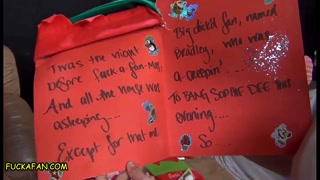 Twas the night
before fuck a fan-mas,
And all the house was
asleeping...
Except for that one
Big dick'd fan, named
Bradley, who was
a creepin'....
To BANG SOPHIE DEE this
evening...
So ....
FUCKAFAN.COM